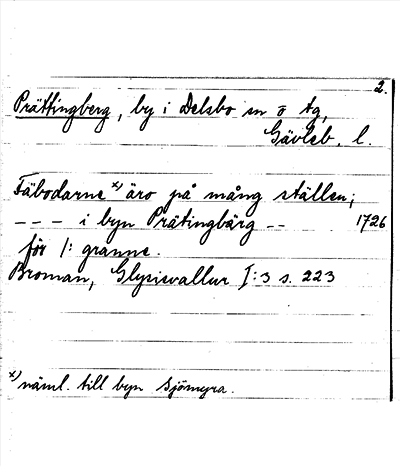 2.
Prättingberg, by i Delsbo sn o tg,
Gävleb. l.
Fäbodarne x) äro på mång ställen;
--- i byn Prätingbärg -- 1726
för /: granne.
Broman, Glysisvallur I:3 s. 223
x) näml. till byn Sjömyra.